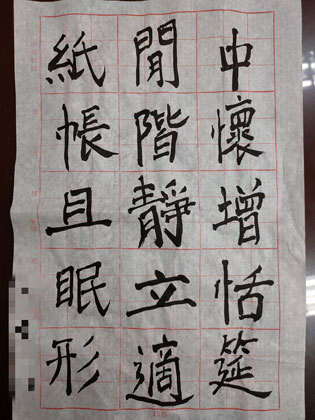 中懷增恬筵
閒階靜立適
紙帳且眠形